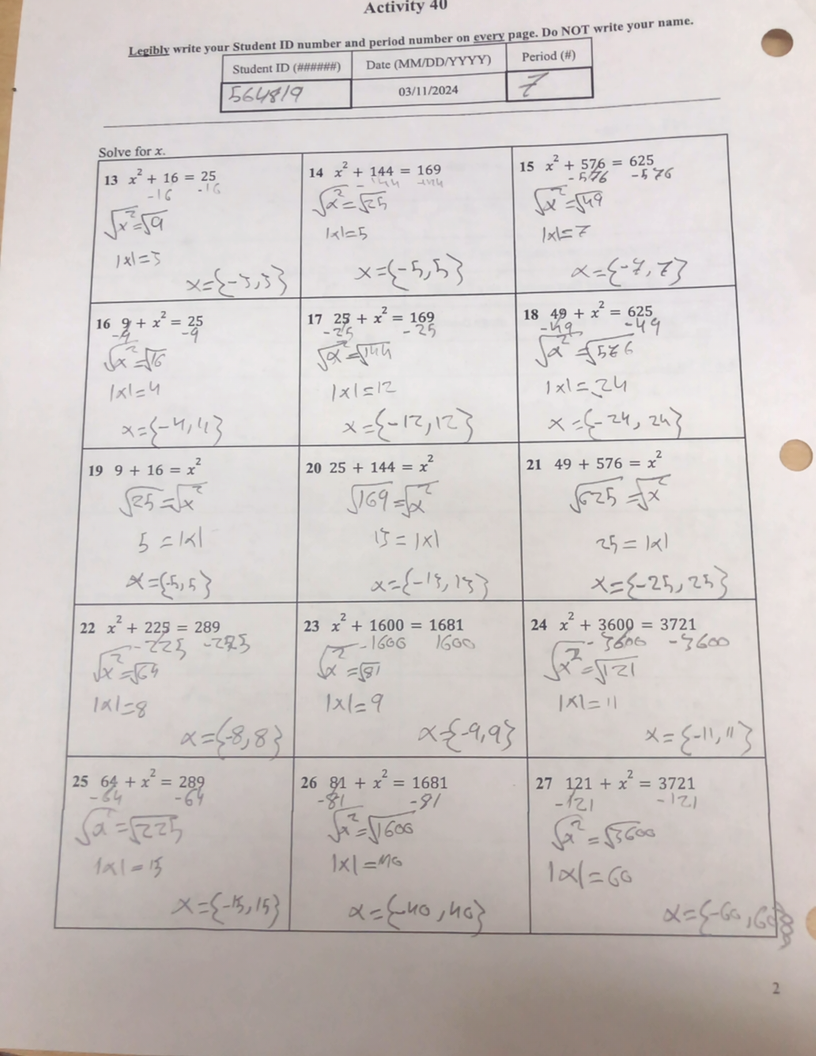 Activity 40
Legibly write your Student ID number and period number on every page. Do NOT write your name.
Student ID (######) Date (MM/DD/YYYY) Period (#)
564819 03/11/2024 7
Solve for x.
13 x² + 16 = 25
-16 -16
√x² = √9
|x|=3
x={-3,3}
14 x² + 144 = 169
-144 -144
√x² = √25
|x|=5
x={-5,5}
15 x² + 576 = 625
-576 -576
√x² = √49
|x|=7
x={-7,7}
16 9 + x² = 25
-9 -9
√x² = √16
|x|=4
x={-4,4}
17 25 + x² = 169
-25 -25
√x² = √144
|x|=12
x={-12,12}
18 49 + x² = 625
-49 -49
√x² = √576
|x|=24
x={-24, 24}
19 9 + 16 = x²
√25 = √x²
5 = |x|
x={-5,5}
20 25 + 144 = x²
√169 = √x²
13 = |x|
x={-13,13}
21 49 + 576 = x²
√625 = √x²
25 = |x|
x={-25,25}
22 x² + 225 = 289
-225 -225
√x² = √64
|x|=8
x={-8,8}
23 x² + 1600 = 1681
-1600 1600
√x² = √81
|x|=9
x={-9,9}
24 x² + 3600 = 3721
-3600 -3600
√x² = √121
|x|=11
x={-11,11}
25 64 + x² = 289
-64 -64
√x² = √225
|x|=15
x={-15,15}
26 81 + x² = 1681
-81 -81
√x² = √1600
|x|=40
x={-40,40}
27 121 + x² = 3721
-121 -121
√x² = √3600
|x|=60
x={-60,60}
2